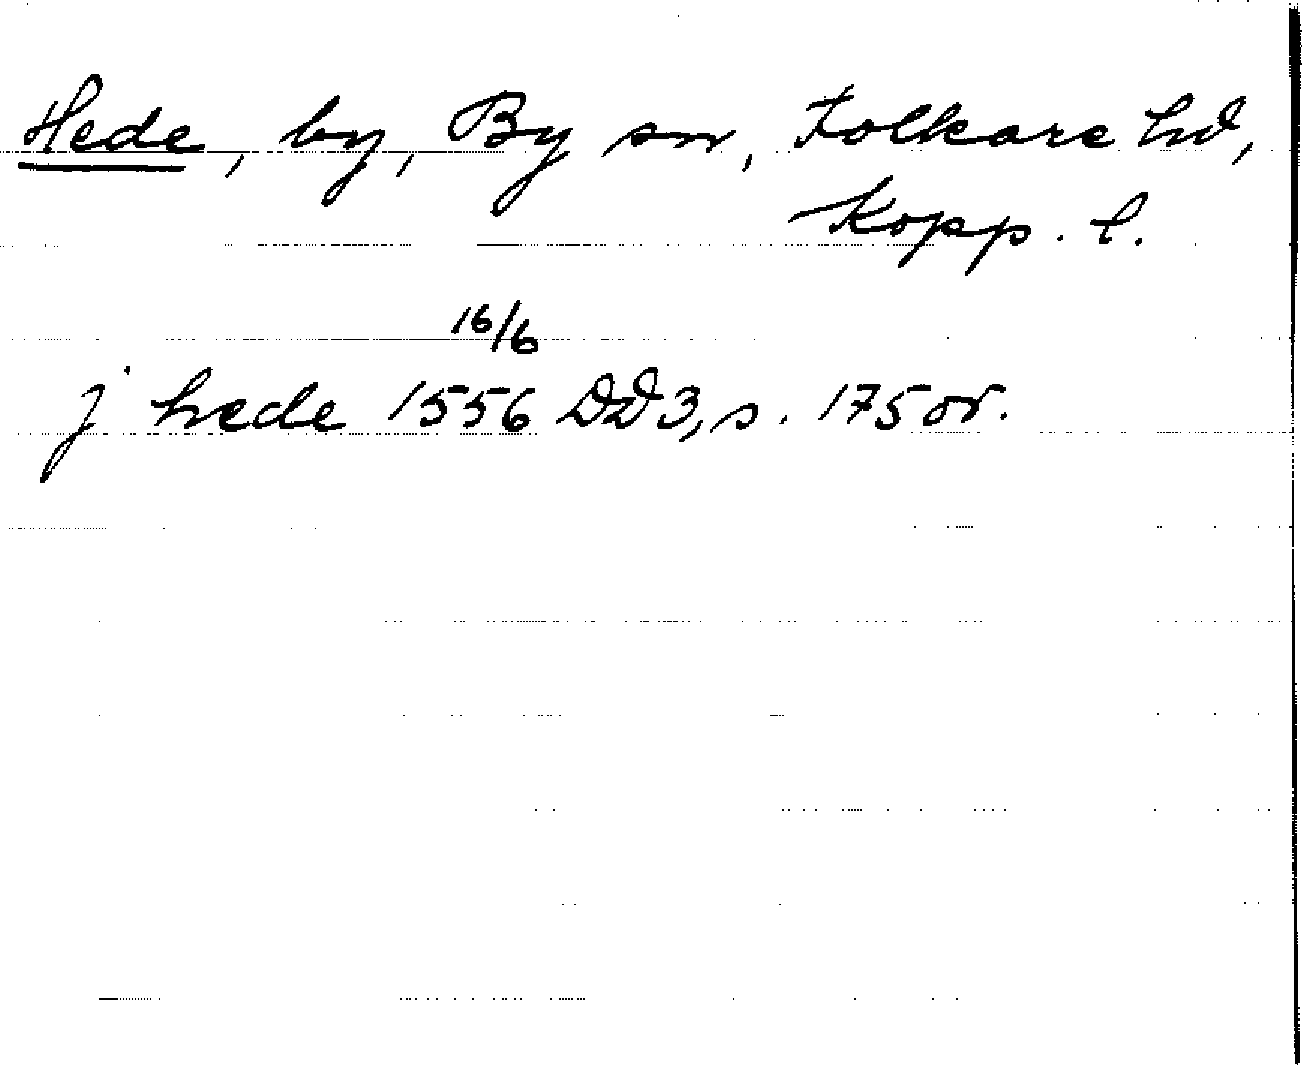 Hede, by, By sn, Folkare hd,
Kopp. l.
16/6
j hede 1556 DD3, s. 175 or.